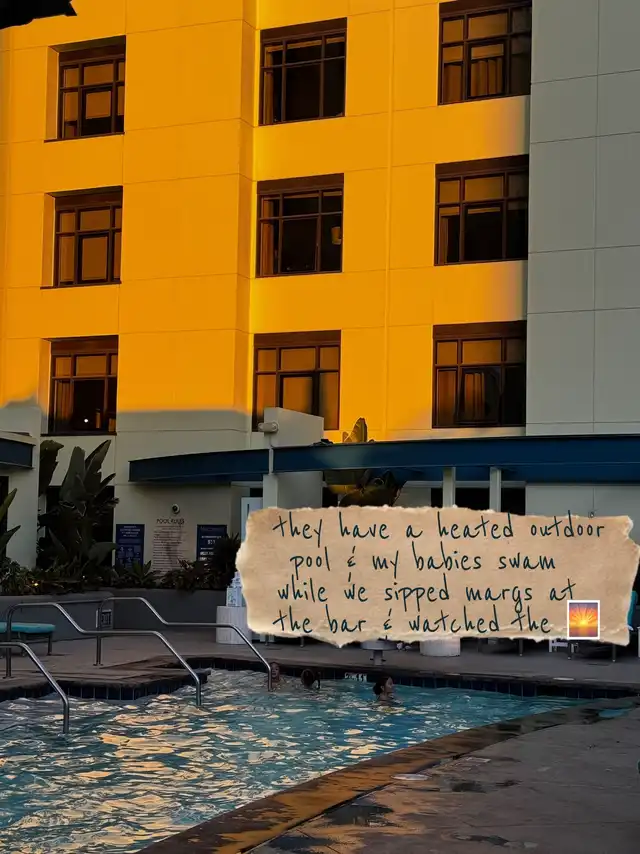 POOL RULES
they have a heated outdoor
pool & my babies swam
while we sipped margs at
the bar & watched the 🌅